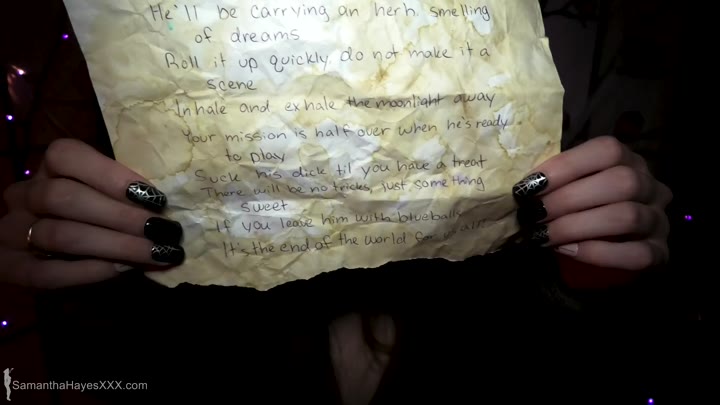 He'll be carrying an herb smelling
of dreams
Roll it up quickly do not make it a
scene
Inhale and exhale the moonlight away
Your mission is half over when he's ready
to play
Suck his dick til you have a treat
There will be no tricks, just something
sweet
If you leave him with blueballs
It's the end of the world for us all!
SamanthaHayesXXX.com